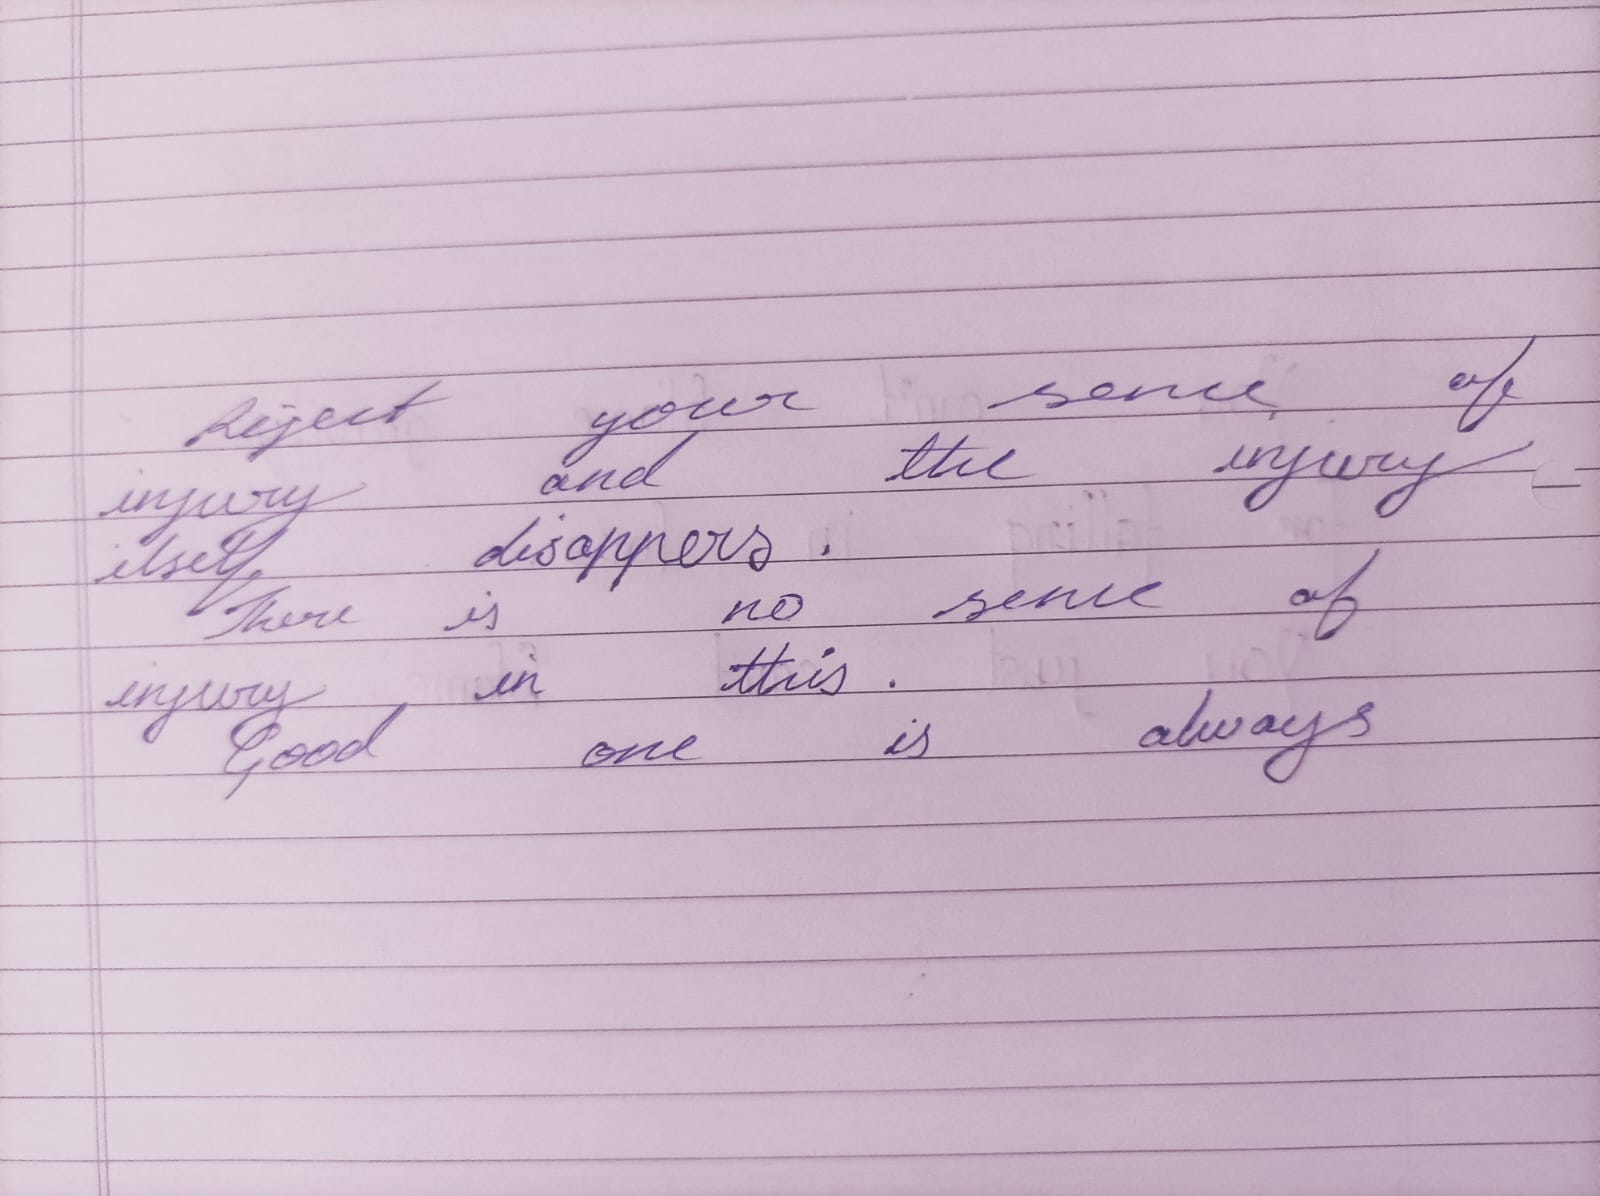 Reject your sence of
injury and the injury
itself disappers.
There is no sence of
injury in this.
Good one is always